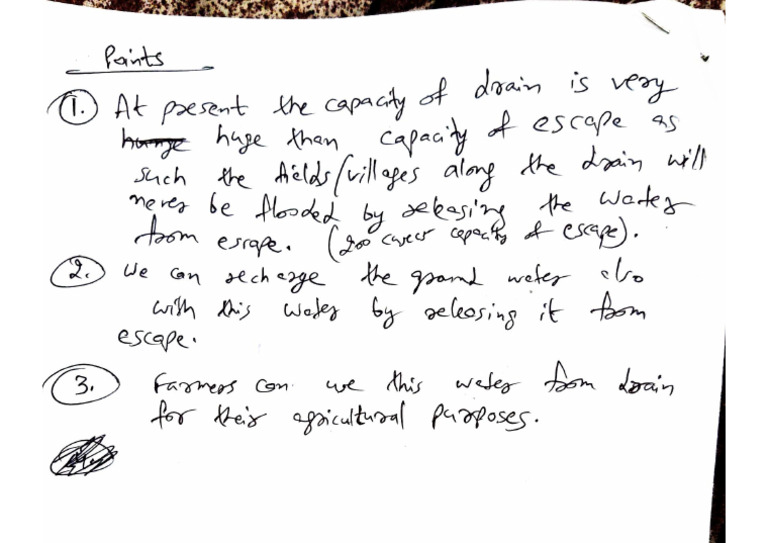 Points
1. At present the capacity of drain is very
huge than capacity of escape as
such the fields/villages along the drain will
never be flooded by releasing the water
from escape. (200 cusec capacity of escape).
2. We can recharge the ground water also
with this water by releasing it from
escape.
3. Farmers can use this water from drain
for their agricultural purposes.